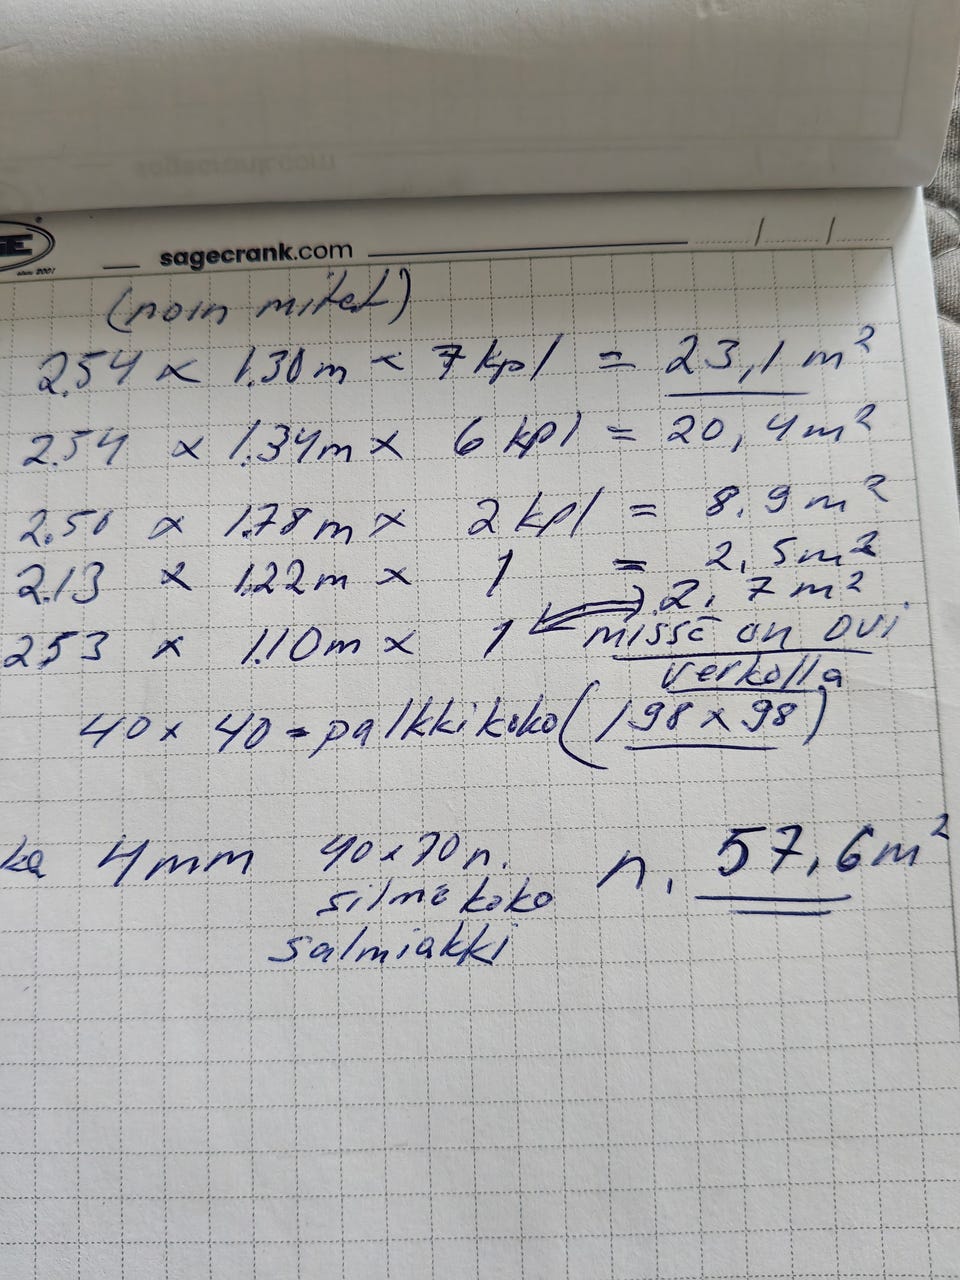 GE
since 2001
sagecrank.com
(noin mitat)
2.54 x 1.30m x 7 kpl = 23,1 m²
2.54 x 1.34m x 6 kpl = 20,4m²
2.50 x 1.78m x 2 kpl = 8.9m²
2.13 x 1.22m x 1 = 2,5m²
2.53 x 1.10m x 1 2,7m²
missä on ovi
verkolla
40 x 40 = palkkikoko (198 x 98)
ka 4mm 40x70n. n. 57,6m²
silmäkoko
salmiakki